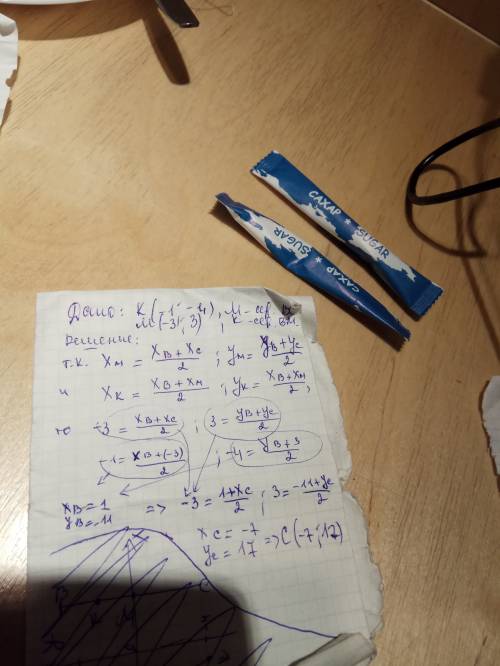 САХАР * SUGAR
SUGAR * САХАР
Дано: K(-1; -4), M - сер.
M(-3; 3), K - сер. BM.
Решение:
т.к. Xм = (XB + XC)/2 ; yм = (yB + yC)/2
и XK = (XB + XM)/2 ; yK = (XB + XM)/2,
то -3 = (XB + XC)/2 ; 3 = (yB + yC)/2
-1 = (XB + (-3))/2 ; -4 = (yB + 3)/2
XB = 1
yB = -11
=> -3 = (1 + XC)/2 ; 3 = (-11 + yC)/2
XC = -7
yC = 17 => C(-7; 17)